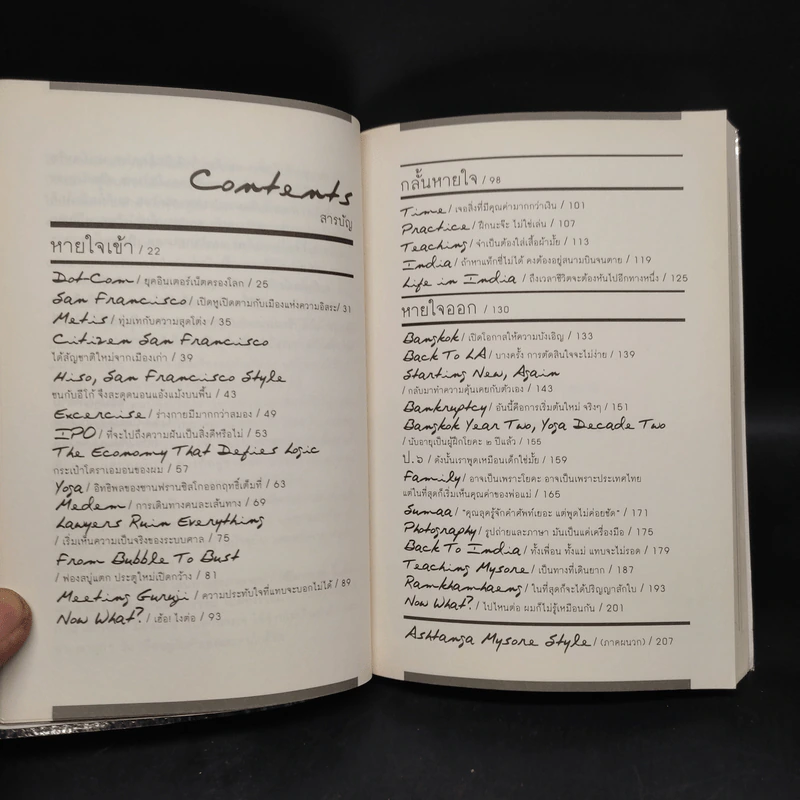 Contents
สารบัญ
หายใจเข้า / 22
Dot-Com / ยุคอินเตอร์เน็ตครองโลก / 25
San Francisco / เปิดหูเปิดตากับเมืองแห่งความอิสระ / 31
Metis / ทุ่มเทกับความสุดโต่ง / 35
Citizen San Francisco
ได้สัญชาติใหม่จากเมืองเก่า / 39
Hiso, San Francisco Style
ชนกับอีโก้ จึงสะดุดนอนแอ้งแม้งบนพื้น / 43
Excercise / ร่างกายมีมากกว่าสมอง / 49
IPO / ที่จะไปถึงความฝันเป็นสิ่งดีหรือไม่ / 53
The Economy That Defies Logic
กระเป๋าโดราเอมอนของผม / 57
Yoga / อิทธิพลของซานฟรานซิสโกออกฤทธิ์เต็มที่ / 63
Medem / การเดินทางคนละเส้นทาง / 69
Lawyers Ruin Everything
/ เริ่มเห็นความเป็นจริงของระบบศาล / 75
From Bubble To Bust
/ ฟองสบู่แตก ประตูใหม่เปิดกว้าง / 81
Meeting Guruji / ความประทับใจที่แทบจะบอกไม่ได้ / 89
Now What? / เฮ้อ! ไงต่อ / 93
กลั้นหายใจ / 98
Time / เจอสิ่งที่มีคุณค่ามากกว่าเงิน / 101
Practice / ฝึกนะจ๊ะ ไม่ใช่เล่น / 107
Teaching / จำเป็นต้องใส่เสื้อผ้ามั้ย / 113
India / ถ้าหาแท็กซี่ไม่ได้ คงต้องอยู่สนามบินจนตาย / 119
Life in India / ถึงเวลาชีวิตจะต้องหันไปอีกทางหนึ่ง / 125
หายใจออก / 130
Bangkok / เปิดโอกาสให้ความบังเอิญ / 133
Back To LA / บางครั้ง การตัดสินใจจะไม่ง่าย / 139
Starting New, Again
/ กลับมาทำความคุ้นเคยกับตัวเอง / 143
Bankruptcy / อันนี้คือการเริ่มต้นใหม่ จริงๆ / 151
Bangkok Year Two, Yoga Decade Two
/ นับอายุเป็นผู้ฝึกโยคะ ๒ ปีแล้ว / 155
ป.๖ / ดังนั้นเราพูดเหมือนเด็กใช่มั้ย / 159
Family / อาจเป็นเพราะโยคะ อาจเป็นเพราะประเทศไทย
แต่ในที่สุดก็เริ่มเห็นคุณค่าของพ่อแม่ / 165
Sumaa / "คุณลุครู้จักคำศัพท์เยอะ แต่พูดไม่ค่อยชัด" / 171
Photography / รูปถ่ายและภาษา มันเป็นแค่เครื่องมือ / 175
Back To India / ทั้งเพื่อน ทั้งแม่ แทบจะไม่รอด / 179
Teaching Mysore / เป็นทางที่เดินยาก / 187
Ramkhamhaeng / ในที่สุดก็จะได้ปริญญาสักใบ / 193
Now What? / ไปไหนต่อ ผมก็ไม่รู้เหมือนกัน / 201
Ashtanga Mysore Style / (ภาคผนวก) / 207